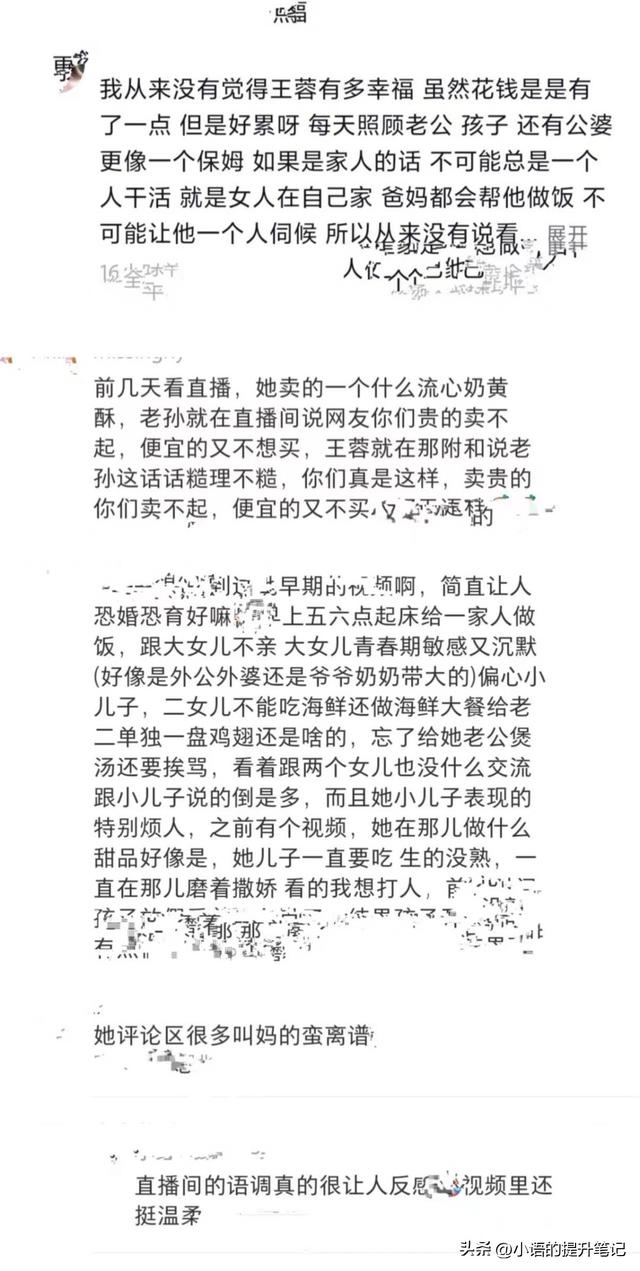 我从来没有觉得王蓉有多幸福 虽然花钱是是有
了一点 但是好累呀 每天照顾老公 孩子 还有公婆
更像一个保姆 如果是家人的话 不可能总是一个
人干活 就是女人在自己家 爸妈都会帮他做饭 不
可能让他一个人伺候 所以从来没有说看 展开
前几天看直播，她卖的一个什么流心奶黄
酥，老孙就在直播间说网友你们贵的卖不
起，便宜的又不想买，王蓉就在那附和说老
孙这话话糙理不糙，你们真是这样，卖贵的
你们卖不起，便宜的又不买 的
早期的视频啊，简直让人
恐婚恐育好嘛 早上五六点起床给一家人做
饭，跟大女儿不亲 大女儿青春期敏感又沉默
(好像是外公外婆还是爷爷奶奶带大的)偏心小
儿子，二女儿不能吃海鲜还做海鲜大餐给老
二单独一盘鸡翅还是啥的，忘了给她老公煲
汤还要挨骂，看着跟两个女儿也没什么交流
跟小儿子说的倒是多，而且她小儿子表现的
特别烦人，之前有个视频，她在那儿做什么
甜品好像是，她儿子一直要吃 生的没熟，一
直在那儿磨着撒娇 看的我想打人，
她评论区很多叫妈的蛮离谱
直播间的语调真的很让人反感 视频里还
挺温柔
头条 @小语的提升笔记